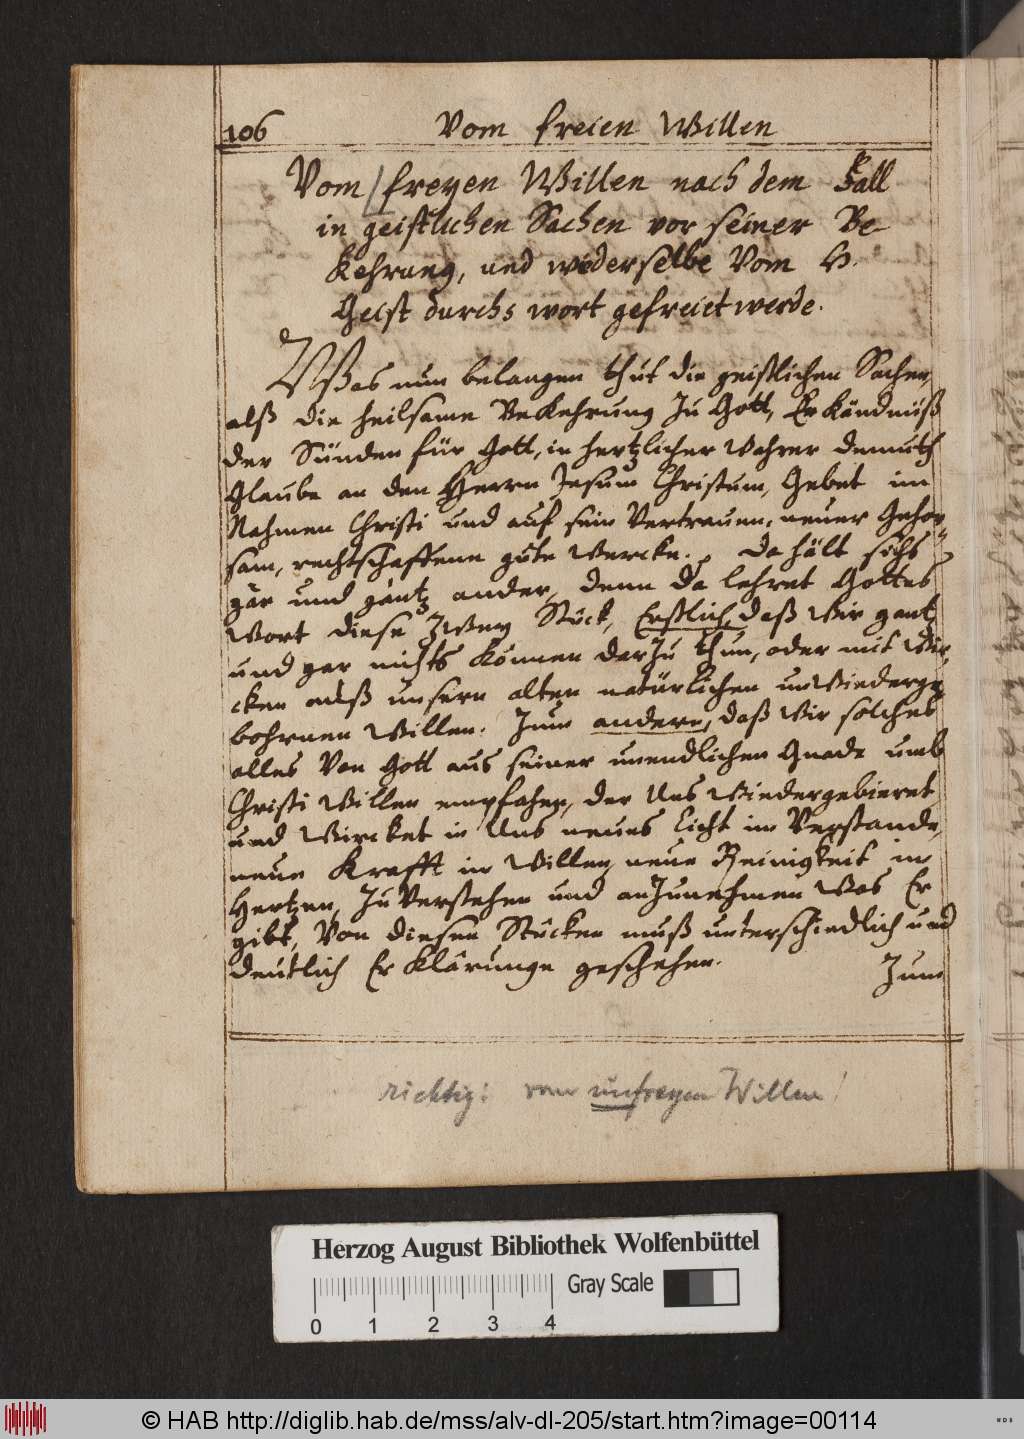 106
Vom freien Willen
Vom freyen Willen nach dem Fall
in geistlichen Sachen vor seiner Be-
Kehrung, und wie derselbe Vom H.
Geist durchs wort gefreiet werde.
Was nun belangen thut die geistlichen Sachen,
alß die heilsame BeKehrung Zu Gott, ErKändnüß
der Sünden für Gott, in hertzlicher Wahrer demuth
Glaube an den Herrn Jesum Christum, Gebet im
Nahmen Christi und auf sein Vertrauen, neuer Gehor-
sam, rechtschaffene gute Wercke. Da hält sichs
gar und gantz ander, denn da lehret Gottes
Wort diese Zwey Stück, Erstlich, daß Wir gantz
und gar nichts Können darZu thun, oder mit Wir-
cken auß unsern alten natürlichen unWiederge-
bohrnen Willen. Zum andern, daß Wir solches
alles Von Gott aus seiner unendlichen Gnade umb
Christi Willen empfahen, der Uns Wiedergebieret
und Wircket in Uns neues Licht im Verstande,
neue Krafft in Willen, neue Reinigkeit im
Hertzen, ZuVerstehen und anZunehmen Was Er
gibt, Von diesen Stücken muß unterschiedlich und
deutlich ErKlärunge geschehen.
Zum
richtig: vom unfreyen Willen!
Herzog August Bibliothek Wolfenbüttel
Gray Scale
0 1 2 3 4
© HAB http://diglib.hab.de/mss/alv-dl-205/start.htm?image=00114